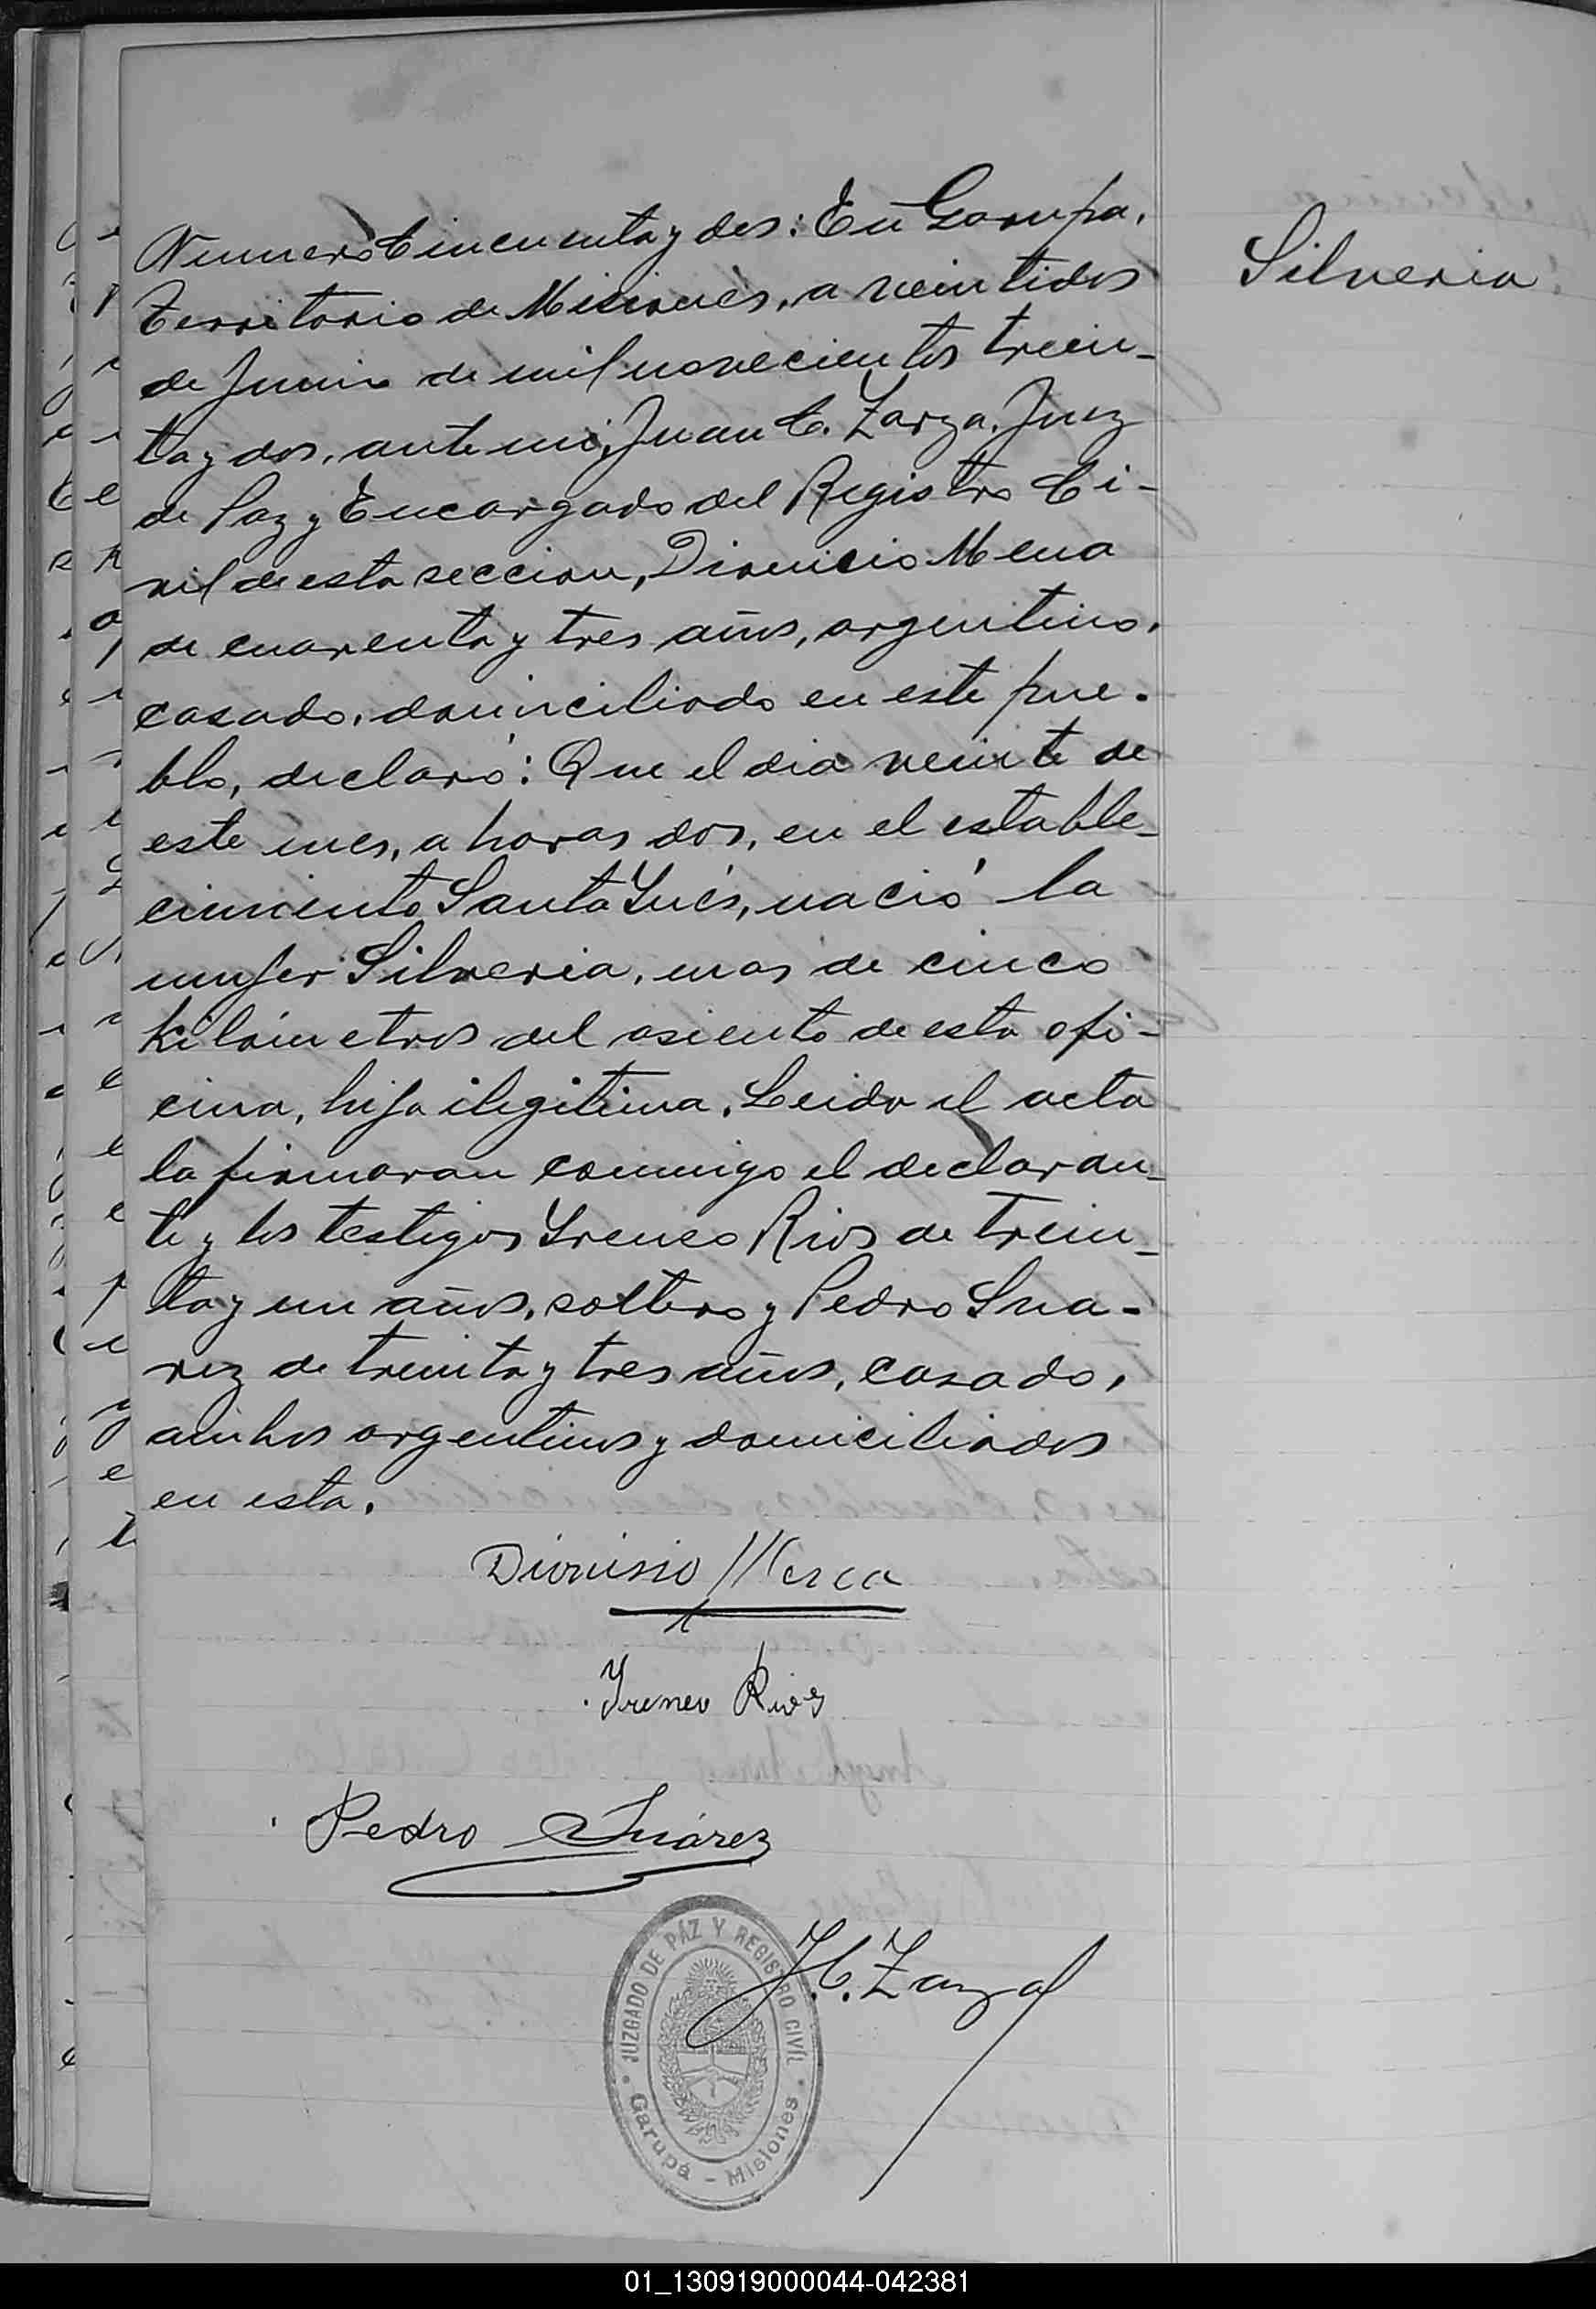 Numero Cincuenta y dos: En Garupa,
Territorio de Misiones, a veintidos
de Junio de mil novecientos trein-
ta y dos, ante mi, Juan C. Zarza, Juez
de Paz y Encargado del Registro Ci-
vil de esta seccion, Dionicio Mena
de cuarenta y tres años, argentino,
casado, domiciliado en este pue-
blo, declaró: Que el dia veinte de
este mes, a horas dos, en el estable-
cimiento Santa Ynés, nació la
mujer Silveria, mas de cinco
kilómetros del asiento de esta ofi-
cina, hija ilegitima. Leida el acta
la firmaran conmigo el declaran-
te y los testigos Yreneo Rios de trein-
ta y un años, soltero y Pedro Sua-
rez de treinta y tres años, casado,
ambos argentinos y domiciliados
en esta.
Silveria
Dionisio Mena
Yreneo Rios
Pedro Suárez
J. C. Zarza
JUZGADO DE PÁZ Y REGISTRO CIVÍL
Garupá - Misiones
01_130919000044-042381